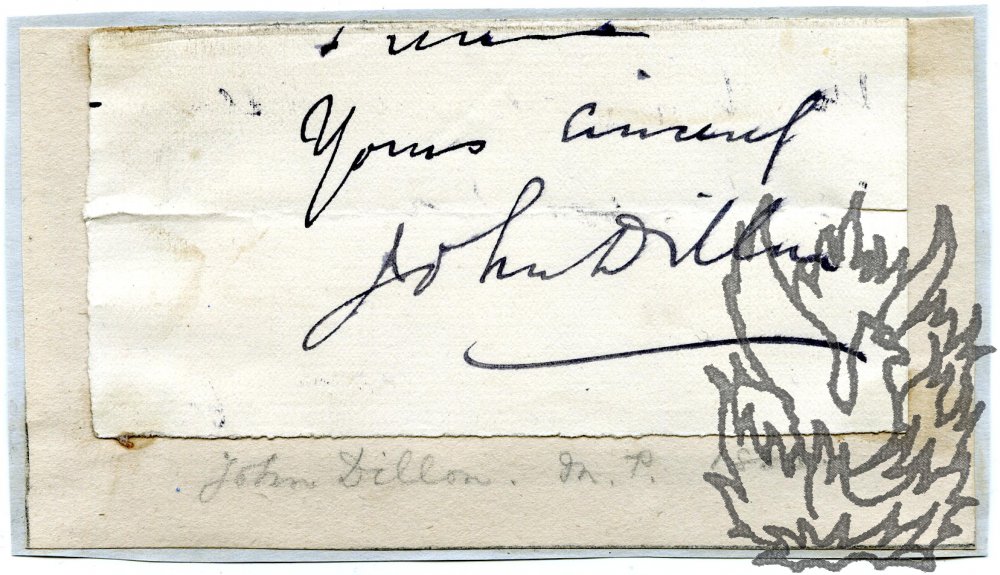 Yours sincerely
John Dillon
John Dillon. M. P.